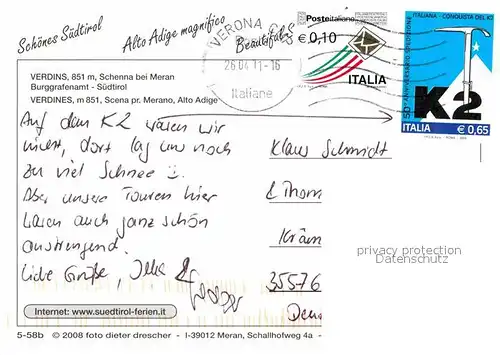 Schönes Südtirol
Alto Adige magnifico
Beautiful S
VERDINS, 851 m, Schenna bei Meran
Burggrafenamt - Südtirol
VERDINES, m 851, Scena pr. Merano, Alto Adige
VERONA
26.04.11-16
Italiane
Posteitaliane
€ 0,10
ITALIA
ITALIANA - CONQUISTA DEL K2
50° ANNIVERSARIO SPEDIZIONE
K2
ITALIA € 0,65
Auf dem K2 waren wir
nicht, dort lag uns noch
zu viel Schnee
Aber unsere Touren hier
waren auch ganz schön
anstrengend.
Liebe Grüße,
Klaus Schmidt
Thom
Kräm
35576
privacy protection
Datenschutz
Internet: www.suedtirol-ferien.it
5-58b © 2008 foto dieter drescher - I-39012 Meran, Schallhofweg 4a -